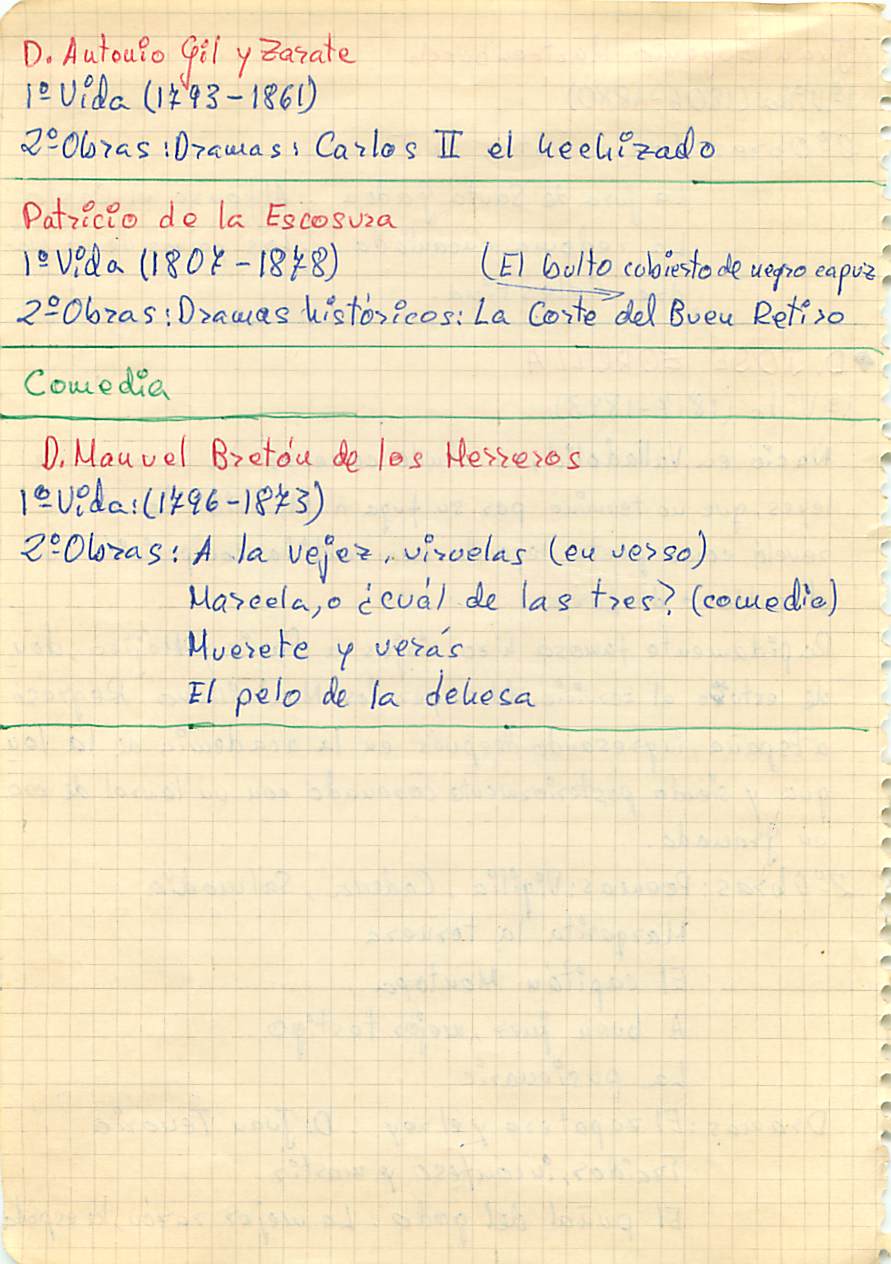 D. Antonio Gil y Zarate
1º Vida (1793-1861)
2º Obras: Dramas: Carlos II el hechizado
Patricio de la Escosura
1º Vida (1807-1878) (El bulto cubierto de negro capuz
2º Obras: Dramas históricos: La Corte del Buen Retiro
Comedia
D. Manuel Bretón de los Herreros
1º Vida: (1796-1873)
2º Obras: A la vejez, viruelas (en verso)
Marcela, o ¿cuál de las tres? (comedia)
Muerete y verás
El pelo de la dehesa